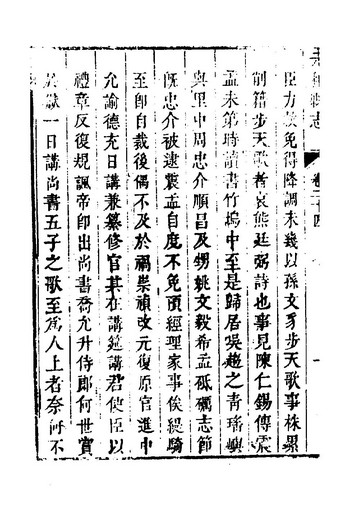 臣力救免得降調未幾以孫文豸步天歌事株累
削籍步天歌者哀熊廷弼詩也事見陳仁錫傳震
孟未第時讀書竹塢中至是歸居吳趨之青瑤嶼
與里中周忠介順昌及甥姚文毅希孟砥礪志節
旣忠介被逮震孟自度不免頂經理家事俟緹騎
至卽自裁後偶不及於禍崇禎改元復原官進中
允諭德充日講兼纂修官其在講筵講君使臣以
禮章反復規諷帝卽出尚書喬允升侍郎何世賓
於獄一日講尚書五子之歌至爲人上者奈何不
卷二十四